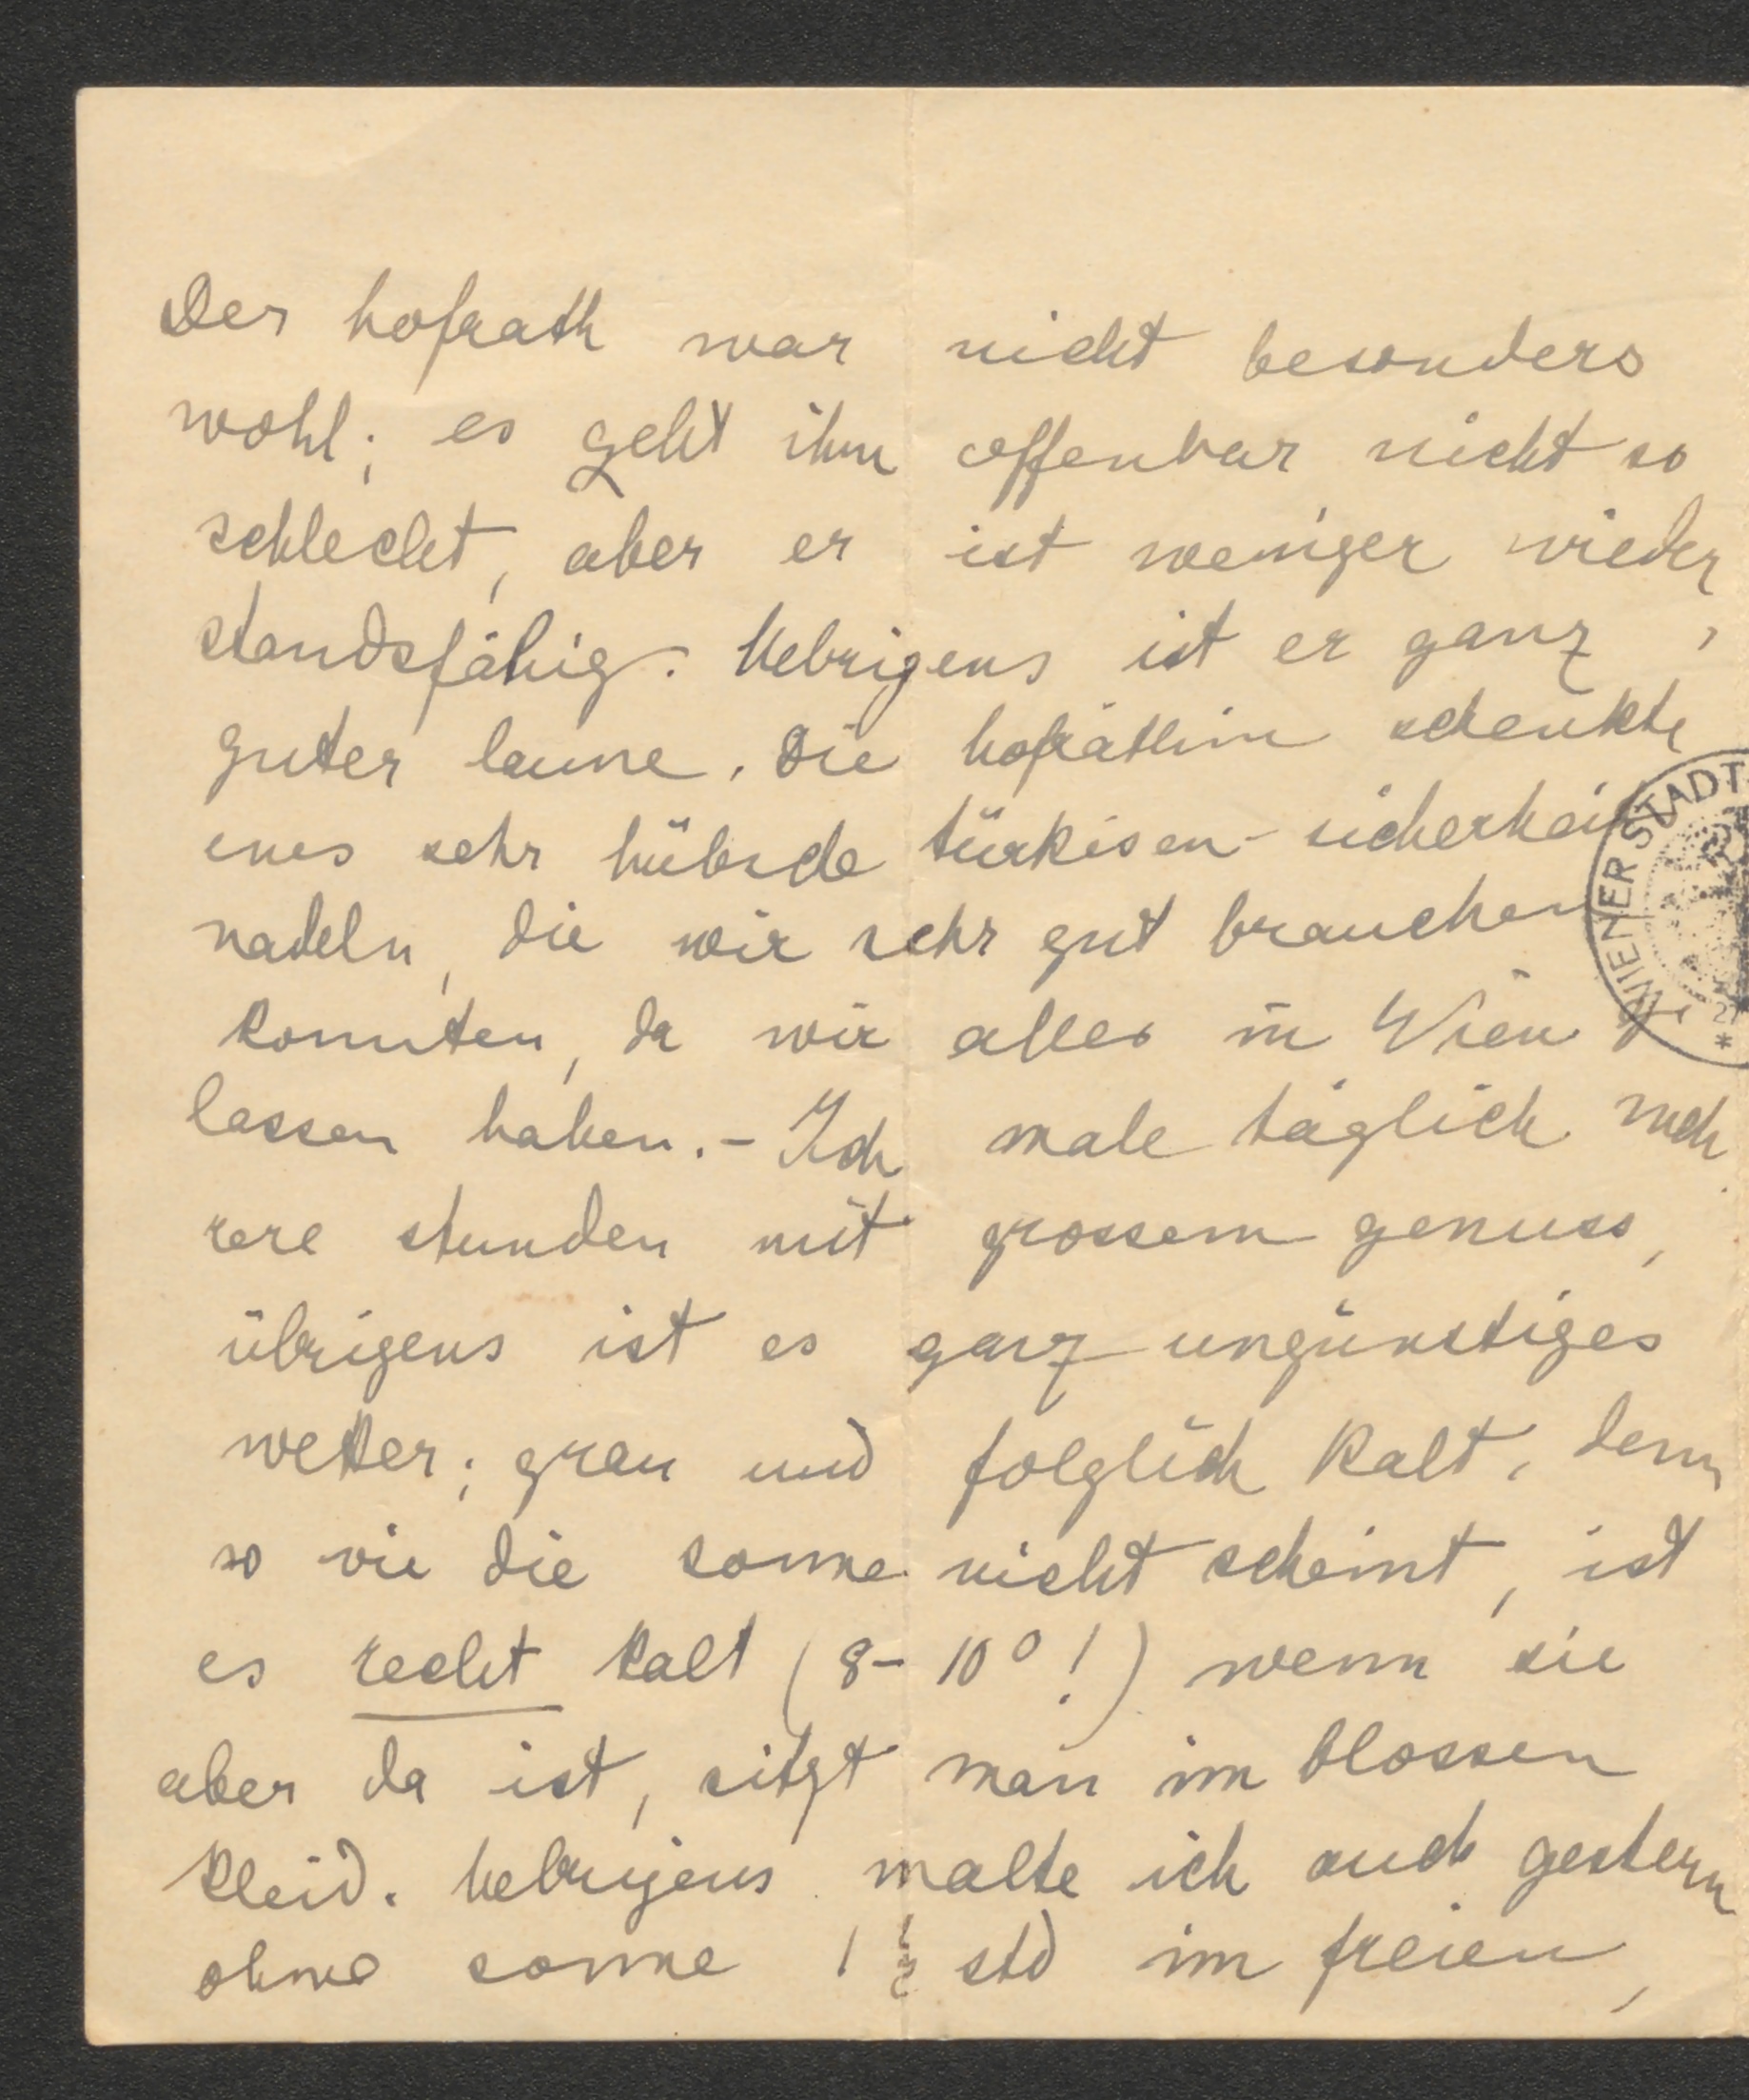 Der hofrath war nicht besonders
wohl; es geht ihm offenbar nicht so
schlecht, aber er ist weniger wieder
standsfähig. Uebrigens ist er ganz
guter laune. Die hofräthin schenkte
uns sehr hübsche türkisen-sicherheits
nadeln, die wir sehr gut brauchen
konnten, da wir alles in Wien
lassen haben. - Ich male täglich meh
rere stunden mit grossem genuss,
übrigens ist es ganz ungünstiges
wetter; grau und folglich kalt, denn
so wie die sonne nicht scheint, ist
es recht kalt (8-10°!) wenn sie
aber da ist, sitzt man im blossen
kleid. Uebrigens malte ich auch gestern
ohne sonne 1½ std im freien,
WIENER STADT